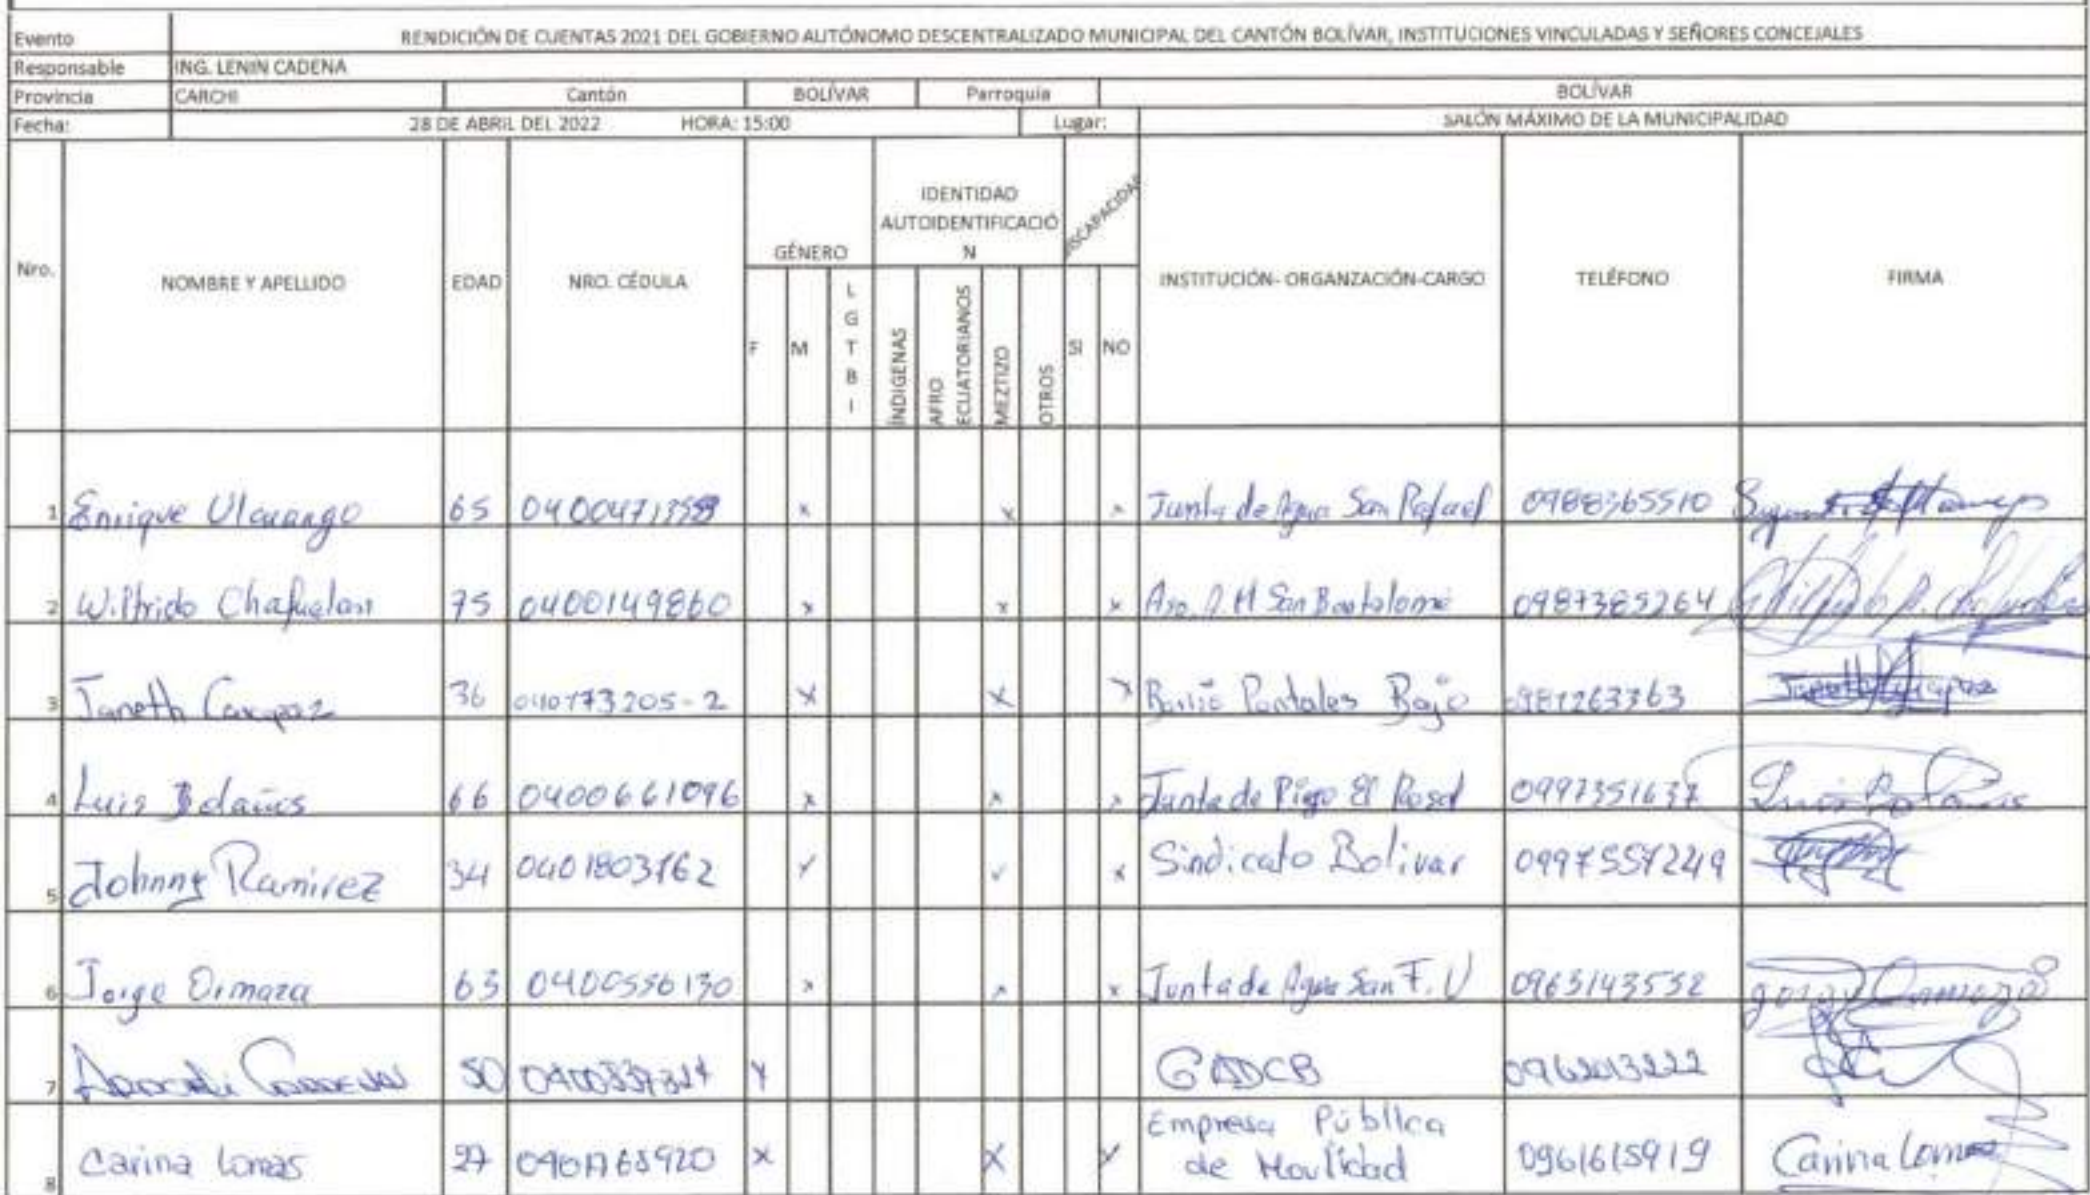 Evento RENDICIÓN DE CUENTAS 2021 DEL GOBIERNO AUTÓNOMO DESCENTRALIZADO MUNICIPAL DEL CANTÓN BOLÍVAR, INSTITUCIONES VINCULADAS Y SEÑORES CONCEJALES
Responsable ING. LENIN CADENA
Provincia CARCHI Cantón BOLÍVAR Parroquia BOLÍVAR
Fecha: 28 DE ABRIL DEL 2022 HORA: 15:00 Lugar: SALÓN MÁXIMO DE LA MUNICIPALIDAD
Nro. NOMBRE Y APELLIDO EDAD NRO. CÉDULA GÉNERO IDENTIDAD AUTOIDENTIFICACIÓN DISCAPACIDAD INSTITUCIÓN- ORGANZACIÓN-CARGO TELÉFONO FIRMA
F M LGTBI ÍNDIGENAS AFRO ECUATORIANOS MEZTIZO OTROS SI NO
1 Enrique 65 x x x Junta de Agua San Rafael 0988365510
2 Wilfrido Chafuelan 75 0400149860 x x x San Bartolomé 0987385264
3 Janeth Carapaz 36 040173205-2 x x x Barrio Portales Bajo 0987263363
4 Luis Bolaños 66 0400661096 x x x Junta de Rigo El Rosal 0997351637 Luis Bolaños
5 Johnny Ramirez 34 0401803162 x x x Sindicato Bolivar 0997557249
6 Jorge Ormaza 63 0400556130 x x x Junta de Agua San F. V 0963143552 Jorge Ormaza
7 50 x GADCB
8 Carina Lomas 27 x x x Empresa Pública de Movilidad 0961615919 Carina Lomas